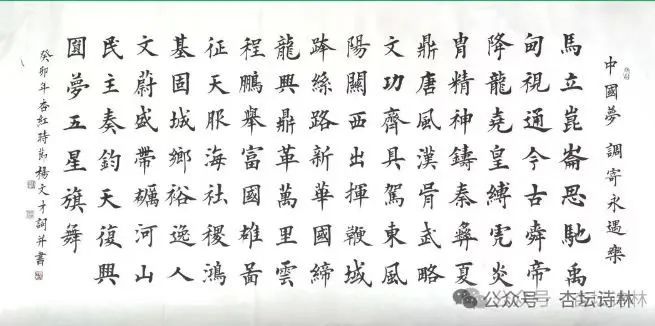 中國夢 調寄永遇樂
馬立崑崙思馳禹
甸視通今古舜帝
降龍堯皇縛虎炎
胄精神鑄秦彝夏
鼎唐風漢骨武略
文功齊具駕東風
陽關西出揮鞭域
絲路新華國締
龍興鼎革萬里雲
程鵬舉富國雄啚
征天服海社稷鴻
基固城鄉裕逸人
文蔚盛帶礪河山
民主奏鈞天復興
圓夢五星旗舞
癸卯年杏紅時楊文才詞并書
公众号 · 杏坛诗林